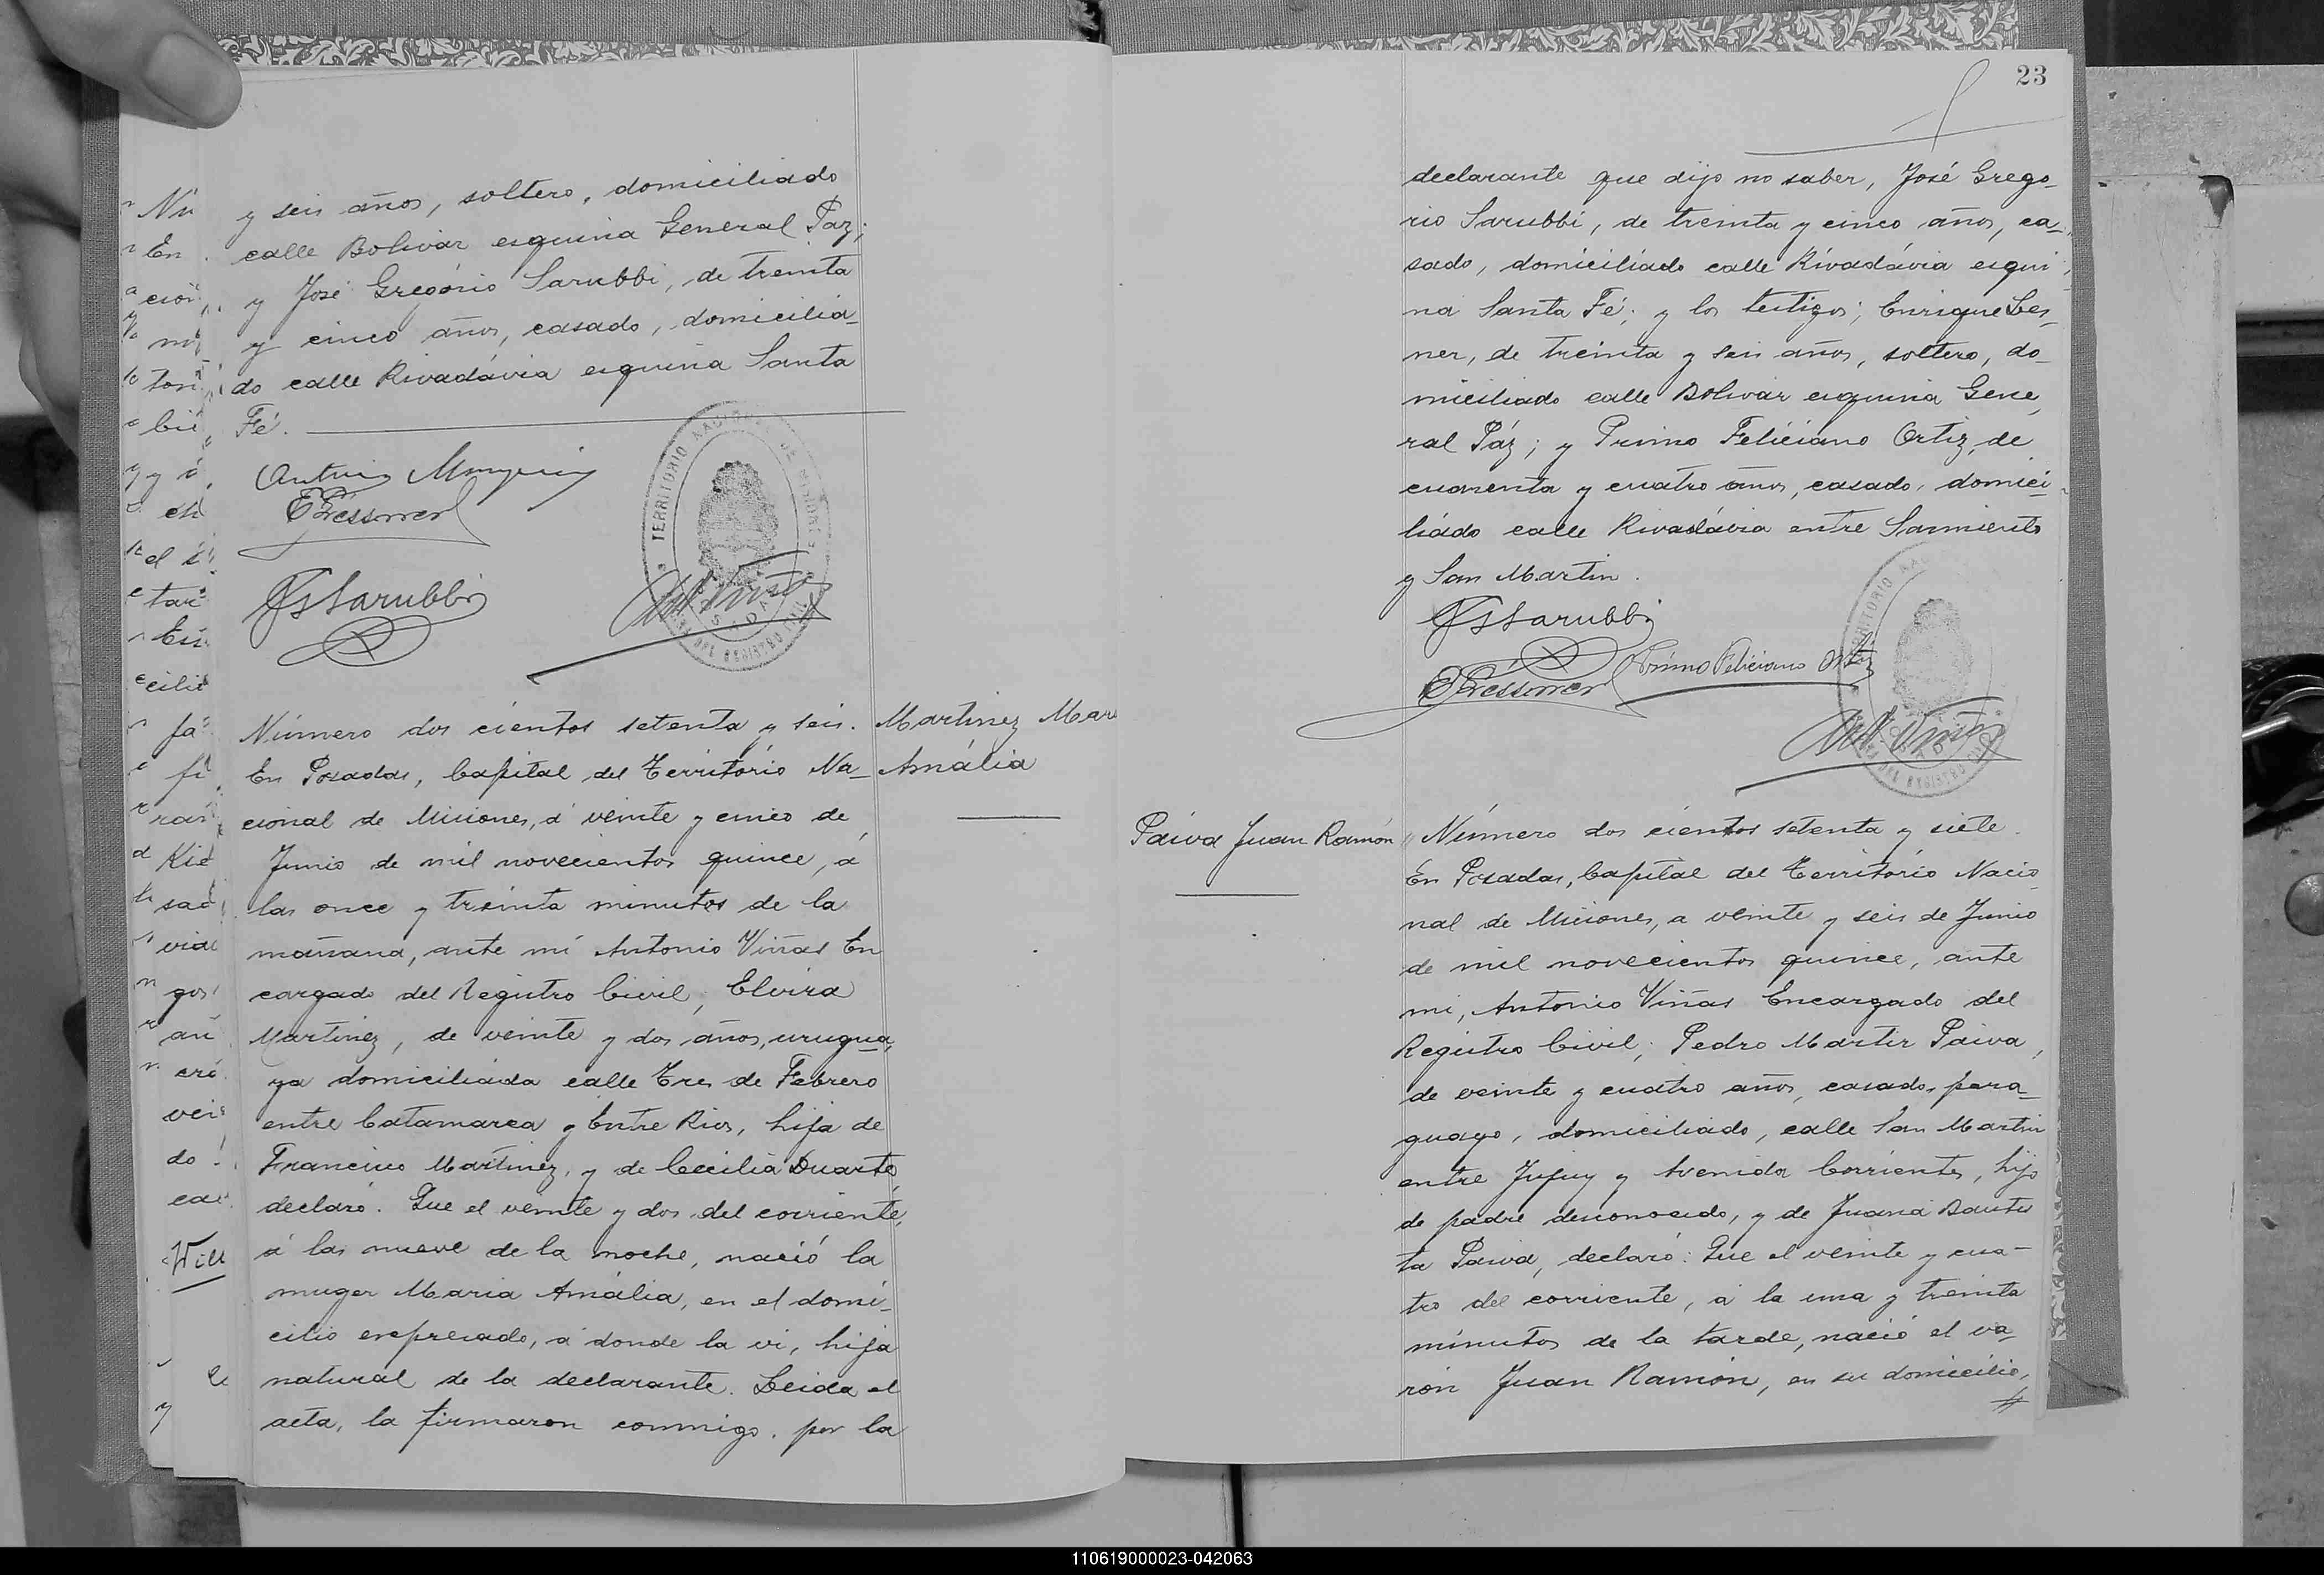 y seis años, soltero, domiciliado
calle Bolivar esquina General Paz;
y José Gregório Sarubbi, de treinta
y cinco años, casado, domicilia-
do calle Rivadávia esquina Santa
Fé.
TERRITORIO NACIONAL DE MISIONES
DEL REGISTRO CIVIL
JGSarubbi
Número dos cientos setenta y seis.
En Posadas, Capital del Território Na-
cional de Misiones, á veinte y cinco de
Junio de mil novecientos quince, á
las once y treinta minutos de la
mañana, ante mí Antonio Viñas En
cargado del Registro Civil, Elvira
Martinez, de veinte y dos años, urugua-
ya domiciliada calle Tres de Febrero
entre Catamarca y Entre Rios, hija de
Francisco Martinez, y de Cecilia Duarte,
declaró. Que el veinte y dos del corriente,
á las nueve de la noche, nació la
muger Maria Amália, en el domi-
cilio expresado, á donde la vi, hija
natural de la declarante. Leida el
acta, la firmaron conmigo, por la
Martinez Mar
Amália
23
declarante que dijo no saber, José Grego-
rio Sarubbi, de treinta y cinco años, ca-
sado, domiciliado calle Rivadávia esqui
na Santa Fé; y los testigos; Enrique Les-
ner, de treinta y seis años, soltero, do-
miciliado calle Bolivar esquina Gene
ral Páz; y Primo Feliciano Ortiz, de
cuarenta y cuatro años, casado, domici-
liádo calle Rivadávia entre Sarmiento
y San Martin.
JGSarubbi
Primo Feliciano Ortiz
DEL REGISTRO
Paiva Juan Ramón
Número dos cientos setenta y siete.
En Posadas, Capital del Território Nacio
nal de Misiones, a veinte y seis de Junio
de mil novecientos quince, ante
mi, Antonio Viñas Encargado del
Registro Civil; Pedro Martir Paiva,
de veinte y cuatro años, casado, para-
guayo, domiciliado, calle San Martin
entre Jujuy y Avenida Corrientes, hijo
de padre desconocido, y de Juana Bautis
ta Paiva, declaró: Que el veinte y cua-
tro del corriente, á la una y treinta
minutos de la tarde, nació el va-
rón Juan Ramón, en su domicilio,
110619000023-042063